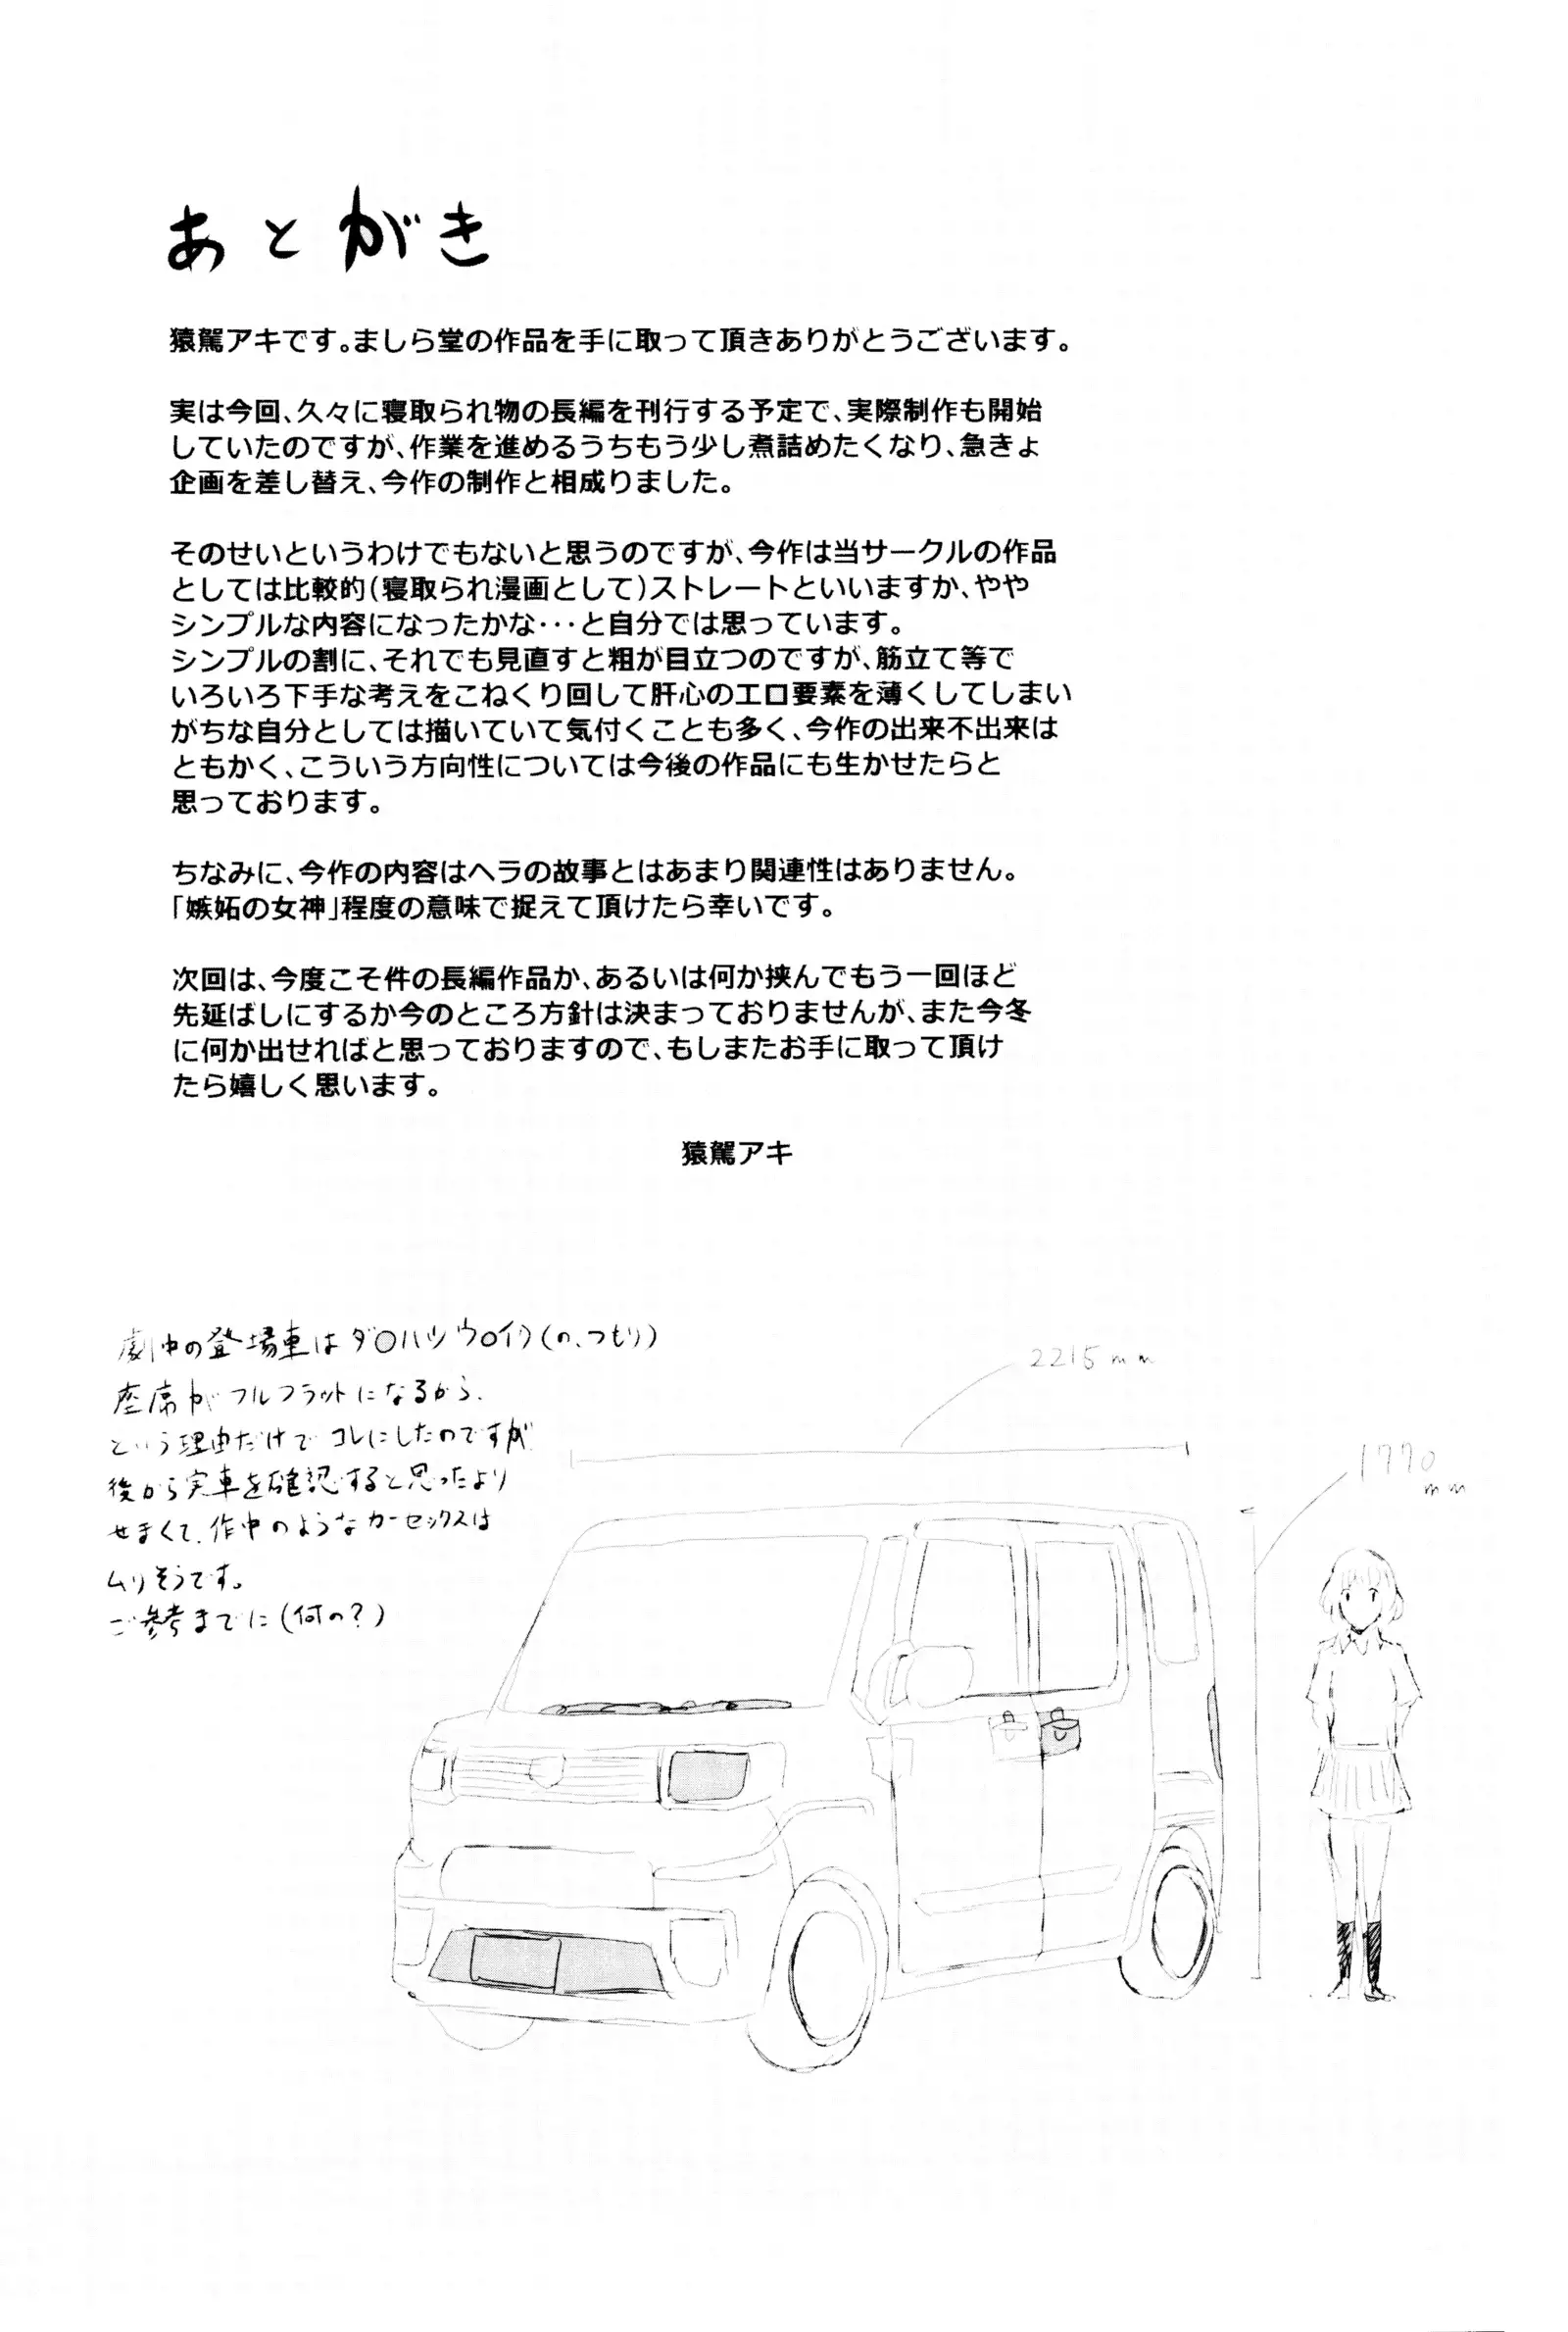 あとがき
猿駕アキです。ましら堂の作品を手に取って頂きありがとうございます。
実は今回、久々に寝取られ物の長編を刊行する予定で、実際制作も開始
していたのですが、作業を進めるうちもう少し煮詰めたくなり、急きょ
企画を差し替え、今作の制作と相成りました。
そのせいというわけでもないと思うのですが、今作は当サークルの作品
としては比較的(寝取られ漫画として)ストレートといいますか、やや
シンプルな内容になったかな・・・と自分では思っています。
シンプルの割に、それでも見直すと粗が目立つのですが、筋立て等で
いろいろ下手な考えをこねくり回して肝心のエロ要素を薄くしてしまい
がちな自分としては描いていて気付くことも多く、今作の出来不出来は
ともかく、こういう方向性については今後の作品にも生かせたらと
思っております。
ちなみに、今作の内容はヘラの故事とはあまり関連性はありません。
「嫉妬の女神」程度の意味で捉えて頂けたら幸いです。
次回は、今度こそ件の長編作品か、あるいは何か挟んでもう一回ほど
先延ばしにするか今のところ方針は決まっておりませんが、また今冬
に何か出せればと思っておりますので、もしまたお手に取って頂け
たら嬉しく思います。
猿駕アキ
劇中の登場車はダ〇ハツウ〇イク(の、つもり)
座席がフルフラットになるから、
という理由だけでコレにしたのですが
後から実車を確認すると思ったより
せまくて、作中のようなカーセックスは
ムリそうです。
ご参考までに(何の?)
2215mm
1770
mm